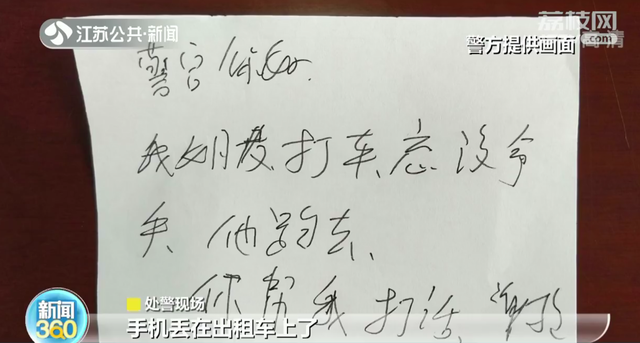 江苏公共·新闻
荔枝网
警方提供画面
警官你好.
我 打车忘没拿
手、他 去、
你帮我打话、谢谢
处警现场
新闻
360
手机丢在出租车上了